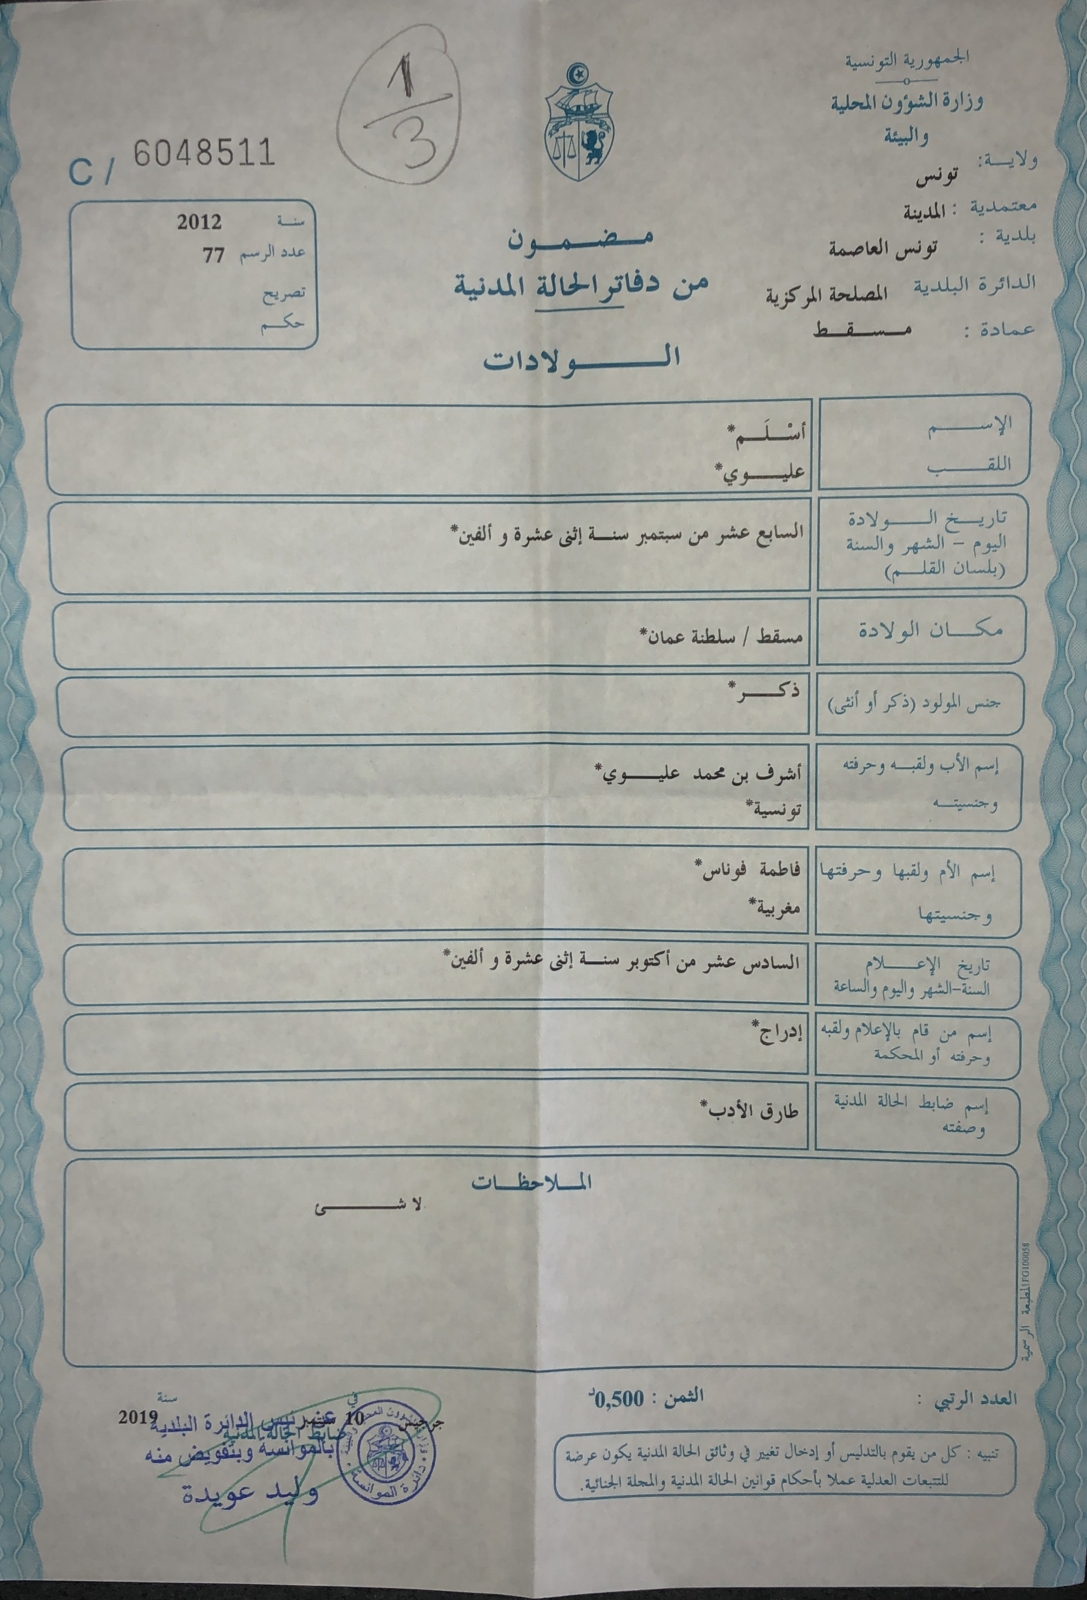 الجمهورية التونسية
وزارة الشؤون المحلية
والبيئة
ولايـــة: تونس
معتمدية : المدينة
بلدية : تونس العاصمة
الدائرة البلدية المصلحة المركزية
عمادة : مـــسـقـــط
1
3
C / 6048511
سنـة 2012
عدد الرسم 77
تصريح
حكـم
مـضـمـــون
من دفاتر الحالة المدنية
الــــــولادات
الإســــــم أسْــلَــم*
اللقـــــب عليـــــوي*
تاريـــخ الــــولادة
اليوم – الشهر والسنة
(بلسان القلـــم)
السابع عشر من سبتمبر سنـــة إثنى عشرة و ألفين*
مكــــان الولادة مسقط / سلطنة عمان*
جنس المولود (ذكر أو أنثى) ذكـــــر*
إسم الأب ولقبــه وحرفته
وجنسيتــــه
أشرف بن محمد عليـــــوي*
تونسية*
إسم الأم ولقبها وحرفتها
وجنسيتها
فاطمة فوناس*
مغربية*
تاريخ الإعــــــلام
السنة-الشهر واليوم والساعة
السادس عشر من أكتوبر سنـــة إثنى عشرة و ألفين*
إسم من قام بالإعلام ولقبه
وحرفته أو المحكمة
إدراج*
إسم ضابط الحالة المدنية
وصفته
طارق الأدب*
المــلاحظــات
لا شـــــــئ
المطبعة الرسمية
العدد الرتبي :
الثمن : 0,500د
تنبيه : كل من يقوم بالتدليس أو إدخال تغيير في وثائق الحالة المدنية يكون عرضة
للتتبعات العدلية عملا بأحكام قوانين الحالة المدنية والمجلة الجنائية.
في 10 سنة 2019
ضابط الحالة المدنية
عن رئيس الدائرة البلدية
بالموانسة وبتفويض منه
وليد عويدة
دائرة الموانسة